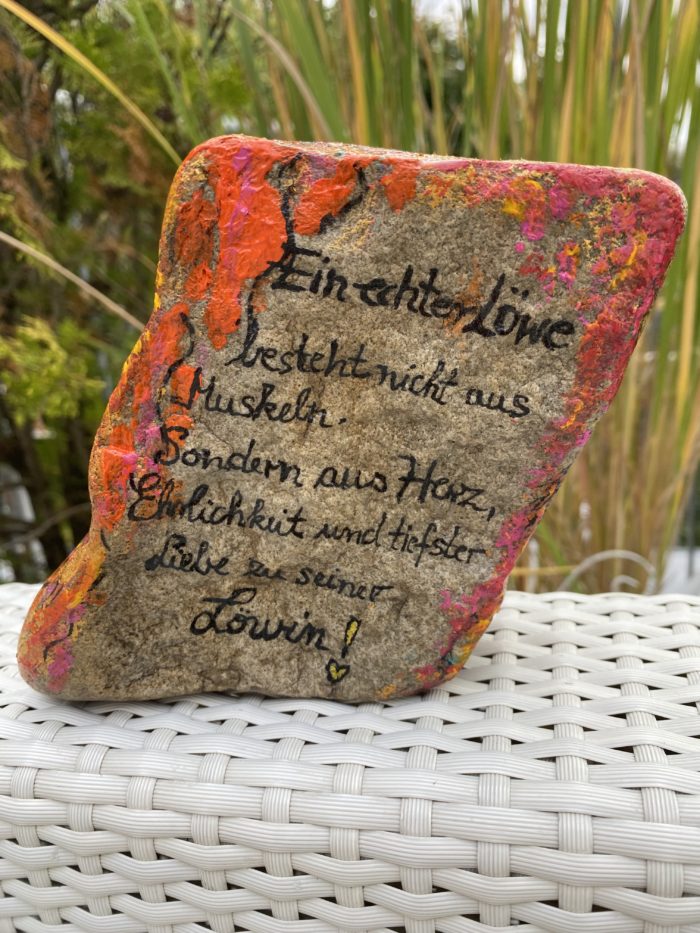 Ein echter Löwe
besteht nicht aus
Muskeln.
Sondern aus Herz,
Ehrlichkeit und tiefster
Liebe zu seiner
Löwin!